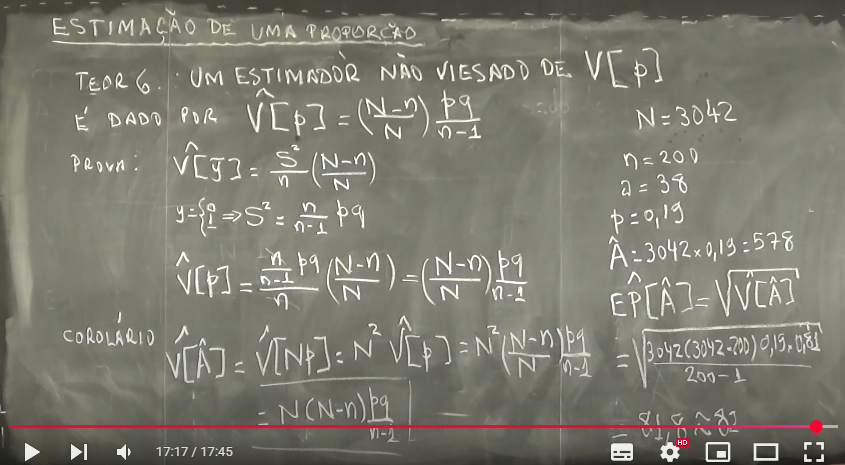 ESTIMAÇÃO DE UMA PROPORÇÃO
TEOR 6. UM ESTIMADOR NÃO VIESADO DE V[p]
É DADO POR V̂[p] = (N-n/N) pq/n-1
PROVA: V̂[ȳ] = S²/n (N-n/N)
y = {0 1 ⇒ S² = n/n-1 pq
V̂[p] = n/n-1 pq/n (N-n/N) = (N-n/N) pq/n-1
COROLÁRIO V̂[Â] = V̂[Np] = N² V̂[p] = N² (N-n/N) pq/n-1
= N(N-n) pq/n-1
N = 3042
n = 200
a = 38
p = 0,19
Â = 3042 × 0,19 = 578
EP̂[Â] = √V̂[Â]
= √3042(3042-200) 0,19 × 0,81/200-1
= 81,8 ≈ 82
17:17 / 17:45
HD